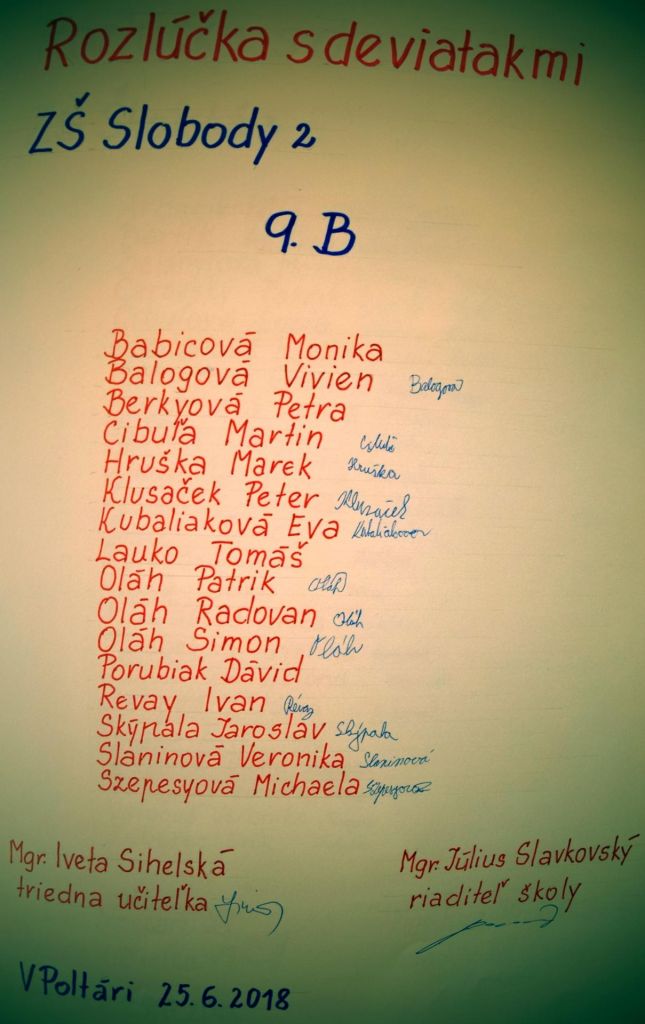 Rozlúčka s deviatakmi
ZŠ Slobody 2
9. B
Babicová Monika
Balogová Vivien Balogová
Berkyová Petra
Cibuľa Martin
Hruška Marek Hruška
Klusaček Peter Klusaček
Kubaliaková Eva Kubaliaková
Lauko Tomáš
Oláh Patrik Oláh
Oláh Radovan Oláh
Oláh Simon Oláh
Porubiak Dávid
Revay Ivan Révay
Skýpala Jaroslav Skýpala
Slaninová Veronika Slaninová
Szepesyová Michaela Szepesyová
Mgr. Iveta Sihelská
triedna učiteľka
Mgr. Július Slavkovský
riaditeľ školy
V Poltári 25.6.2018